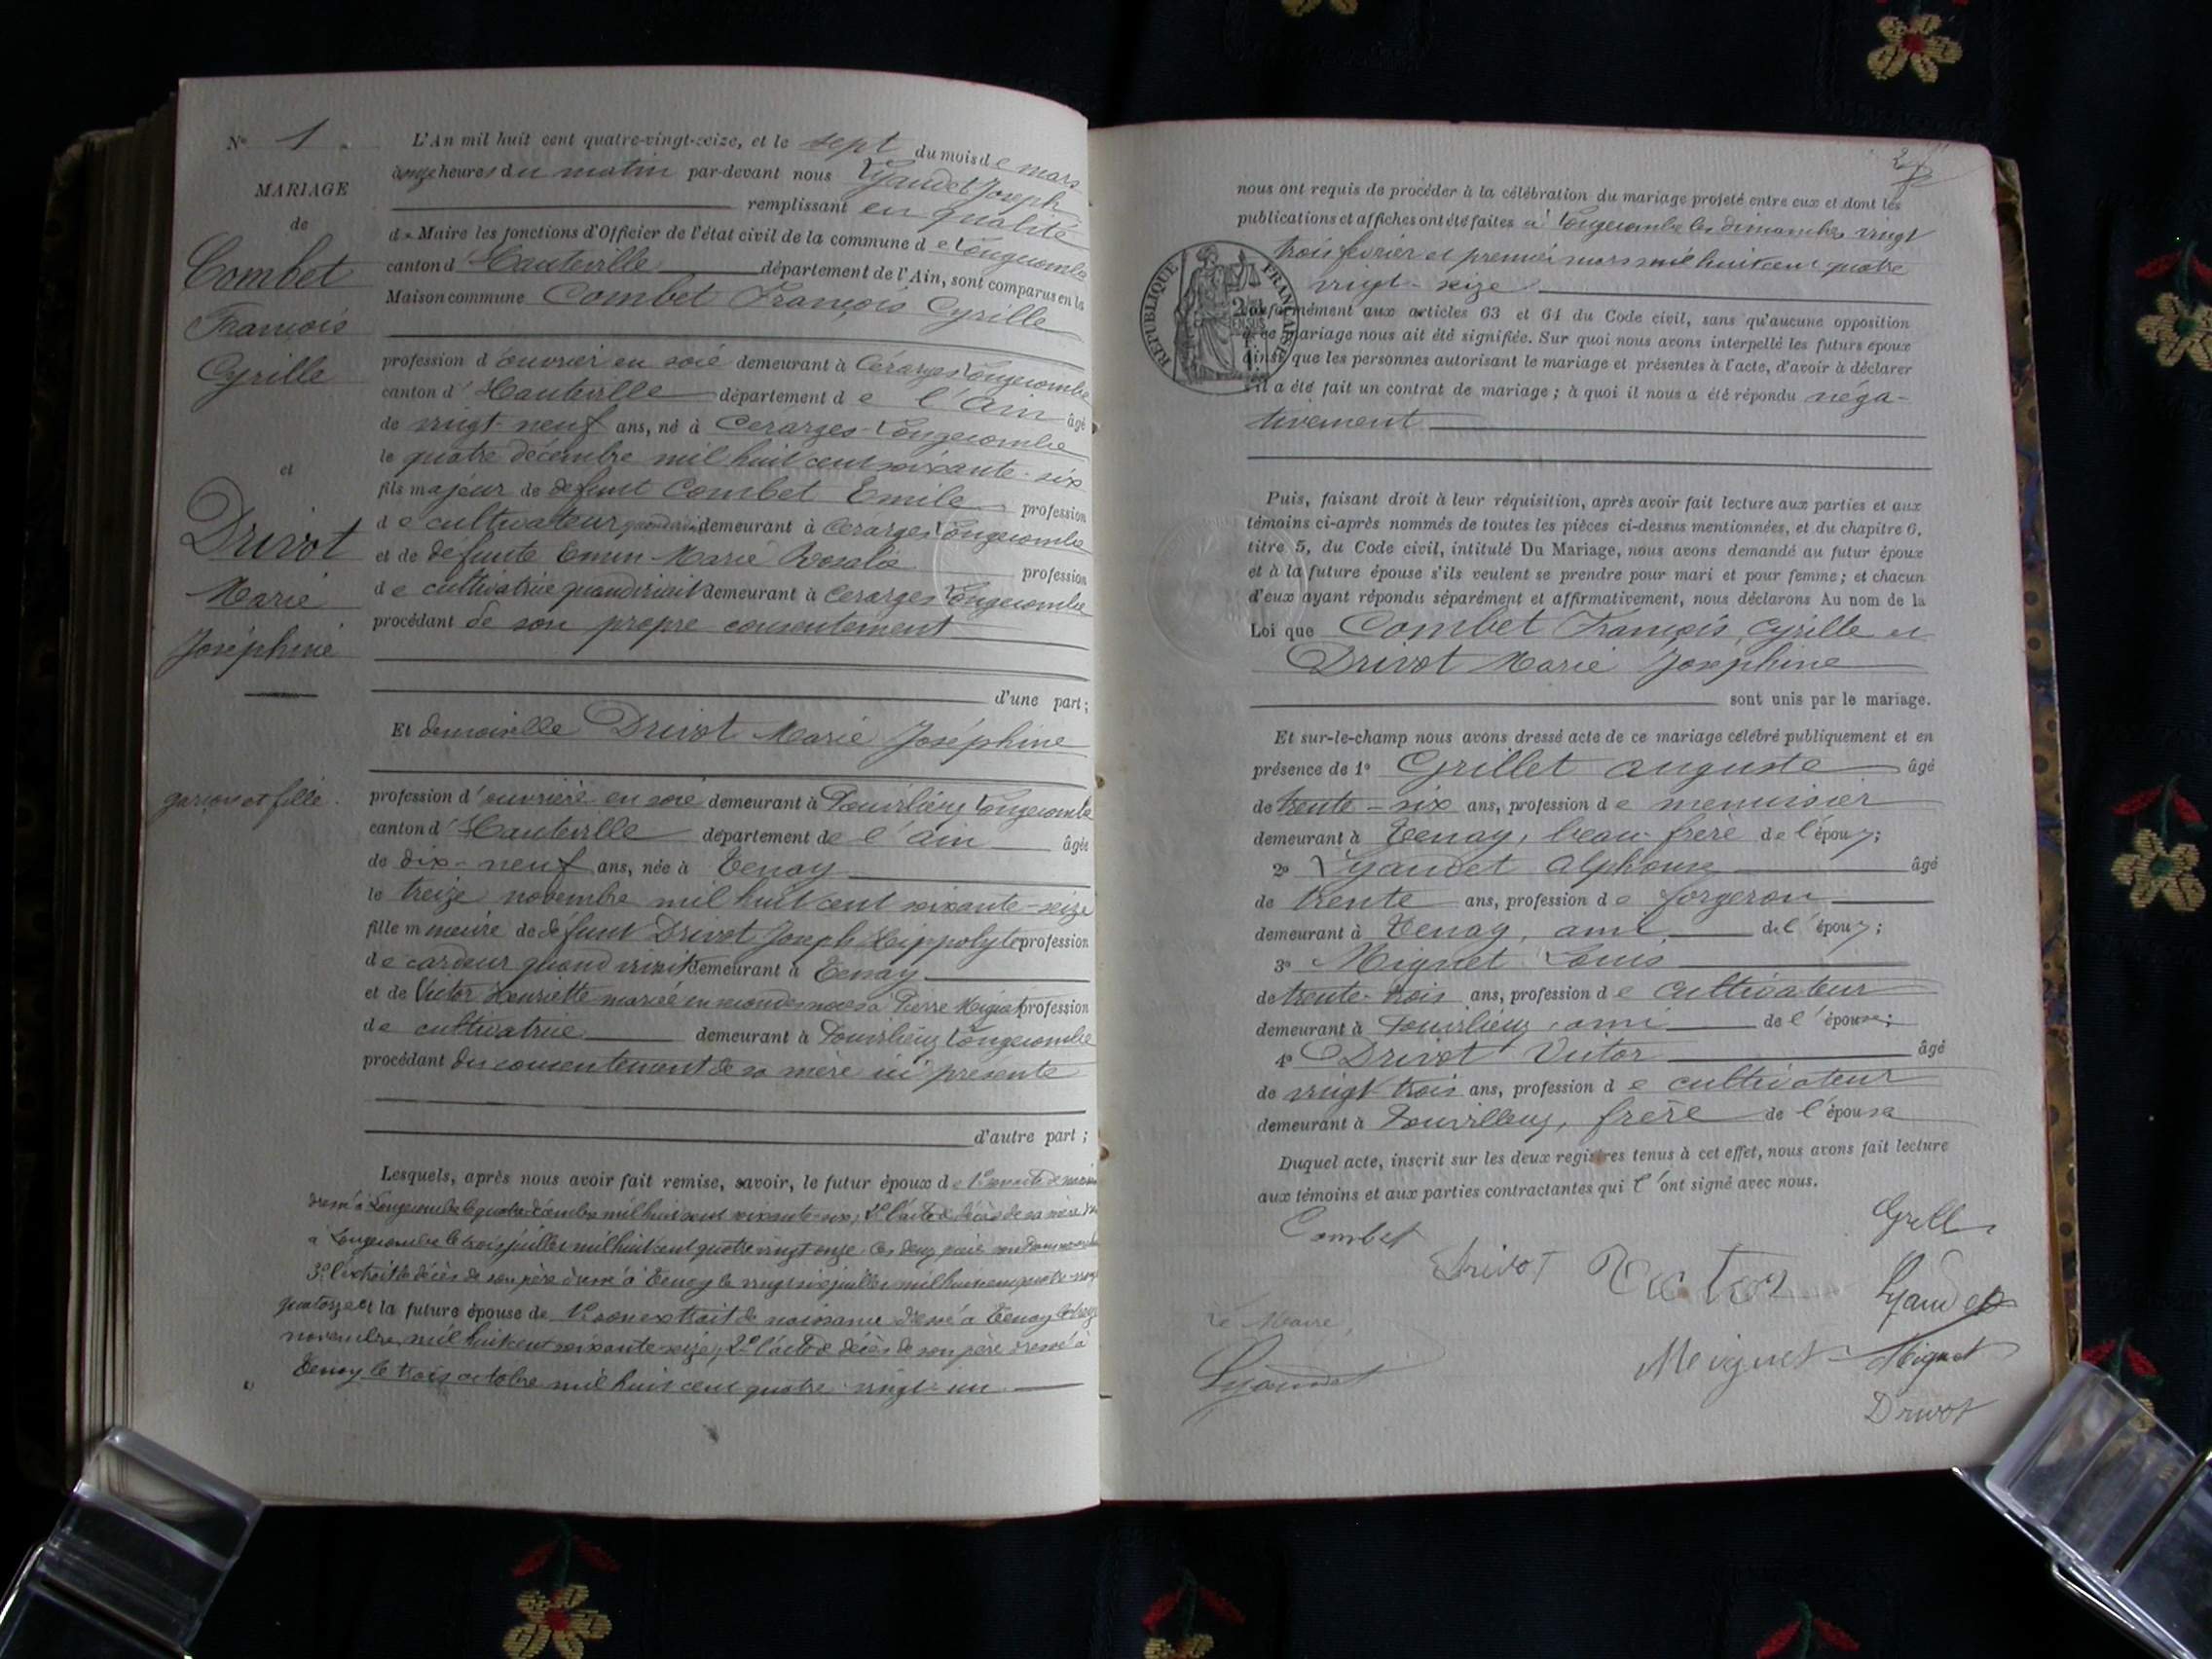 N° 1
MARIAGE
de
Combet
François
Cyrille
et
Drivot
Marie
Joséphine
garçon et fille.
L'An mil huit cent quatre-vingt-seize, et le sept du mois de mars
à onze heures du matin par-devant nous Lyaudet Joseph
remplissant en qualité
de Maire les fonctions d'Officier de l'état civil de la commune de Longecombe
canton d'Hauteville département de l'Ain, sont comparus en la
Maison commune Combet François Cyrille
profession d'ouvrier en soie demeurant à Cerarges Longecombe
canton d'Hauteville département de l'Ain âgé
de vingt-neuf ans, né à Cerarges-Longecombe
le quatre décembre mil huit cent soixante-six
fils majeur de défunt Combet Emile profession
de cultivateur quand vivait demeurant à Cerarges Longecombe
et de défunte Emin-Marie Rosalie profession
de cultivatrice quand vivait demeurant à Cerarges Longecombe
procédant de son propre consentement
d'une part;
Et demoiselle Drivot Marie Joséphine
profession d'ouvrière en soie demeurant à Longecombe
canton d'Hauteville département de l'Ain âgée
de dix-neuf ans, née à Tenay
le treize novembre mil huit cent soixante-seize
fille mineure de défunt Drivot Joseph Hippolyte profession
de cardeur quand vivait demeurant à Tenay
et de Victor Henriette mariée en secondes noces à Pierre Miguet profession
de cultivatrice demeurant à Longecombe
procédant du consentement de sa mère ici présente
d'autre part;
Lesquels, après nous avoir fait remise, savoir, le futur époux de 1°
dressé à Longecombe le quatre décembre mil huit cent soixante-six; 2° l'acte de décès de sa mère
à Longecombe le trois juillet mil huit cent quatre vingt onze. Ces deux
3° l'extrait de décès de son père dressé à Tenay le vingt six juillet mil huit cent quatre vingt
quatorze et la future épouse de 1° son extrait de naissance dressé à Tenay le treize
novembre mil huit cent soixante-seize; 2° l'acte de décès de son père dressé à
Tenay le trois octobre mil huit cent quatre-vingt-un.
2
nous ont requis de procéder à la célébration du mariage projeté entre eux et dont les
publications et affiches ont été faites à Longecombe les dimanches vingt
trois février et premier mars mil huit cent quatre
vingt-seize
RÉPUBLIQUE FRANÇAISE
conformément aux articles 63 et 64 du Code civil, sans qu'aucune opposition
à ce mariage nous ait été signifiée. Sur quoi nous avons interpellé les futurs époux
ainsi que les personnes autorisant le mariage et présentes à l'acte, d'avoir à déclarer
s'il a été fait un contrat de mariage; à quoi il nous a été répondu néga-
tivement
Puis, faisant droit à leur réquisition, après avoir fait lecture aux parties et aux
témoins ci-après nommés de toutes les pièces ci-dessus mentionnées, et du chapitre 6,
titre 5, du Code civil, intitulé Du Mariage, nous avons demandé au futur époux
et à la future épouse s'ils veulent se prendre pour mari et pour femme; et chacun
d'eux ayant répondu séparément et affirmativement, nous déclarons Au nom de la
Loi que Combet François, Cyrille et
Drivot Marie Joséphine
sont unis par le mariage.
Et sur-le-champ nous avons dressé acte de ce mariage célébré publiquement et en
présence de 1° Grillet Auguste âgé
de trente-six ans, profession de menuisier
demeurant à Tenay, beau-frère de l'époux;
2° Lyaudet Alphonse âgé
de trente ans, profession de forgeron
demeurant à Tenay, ami de l'époux;
3° Miguet Louis
de trente-trois ans, profession de cultivateur
demeurant à ami de l'épouse;
4° Drivot Victor âgé
de vingt trois ans, profession de cultivateur
demeurant à frère de l'épouse
Duquel acte, inscrit sur les deux registres tenus à cet effet, nous avons fait lecture
aux témoins et aux parties contractantes qui l'ont signé avec nous.
Combet
Drivot Victor
Lyaudet
Le Maire,
Lyaudet
Miguet
Miguet
Drivot